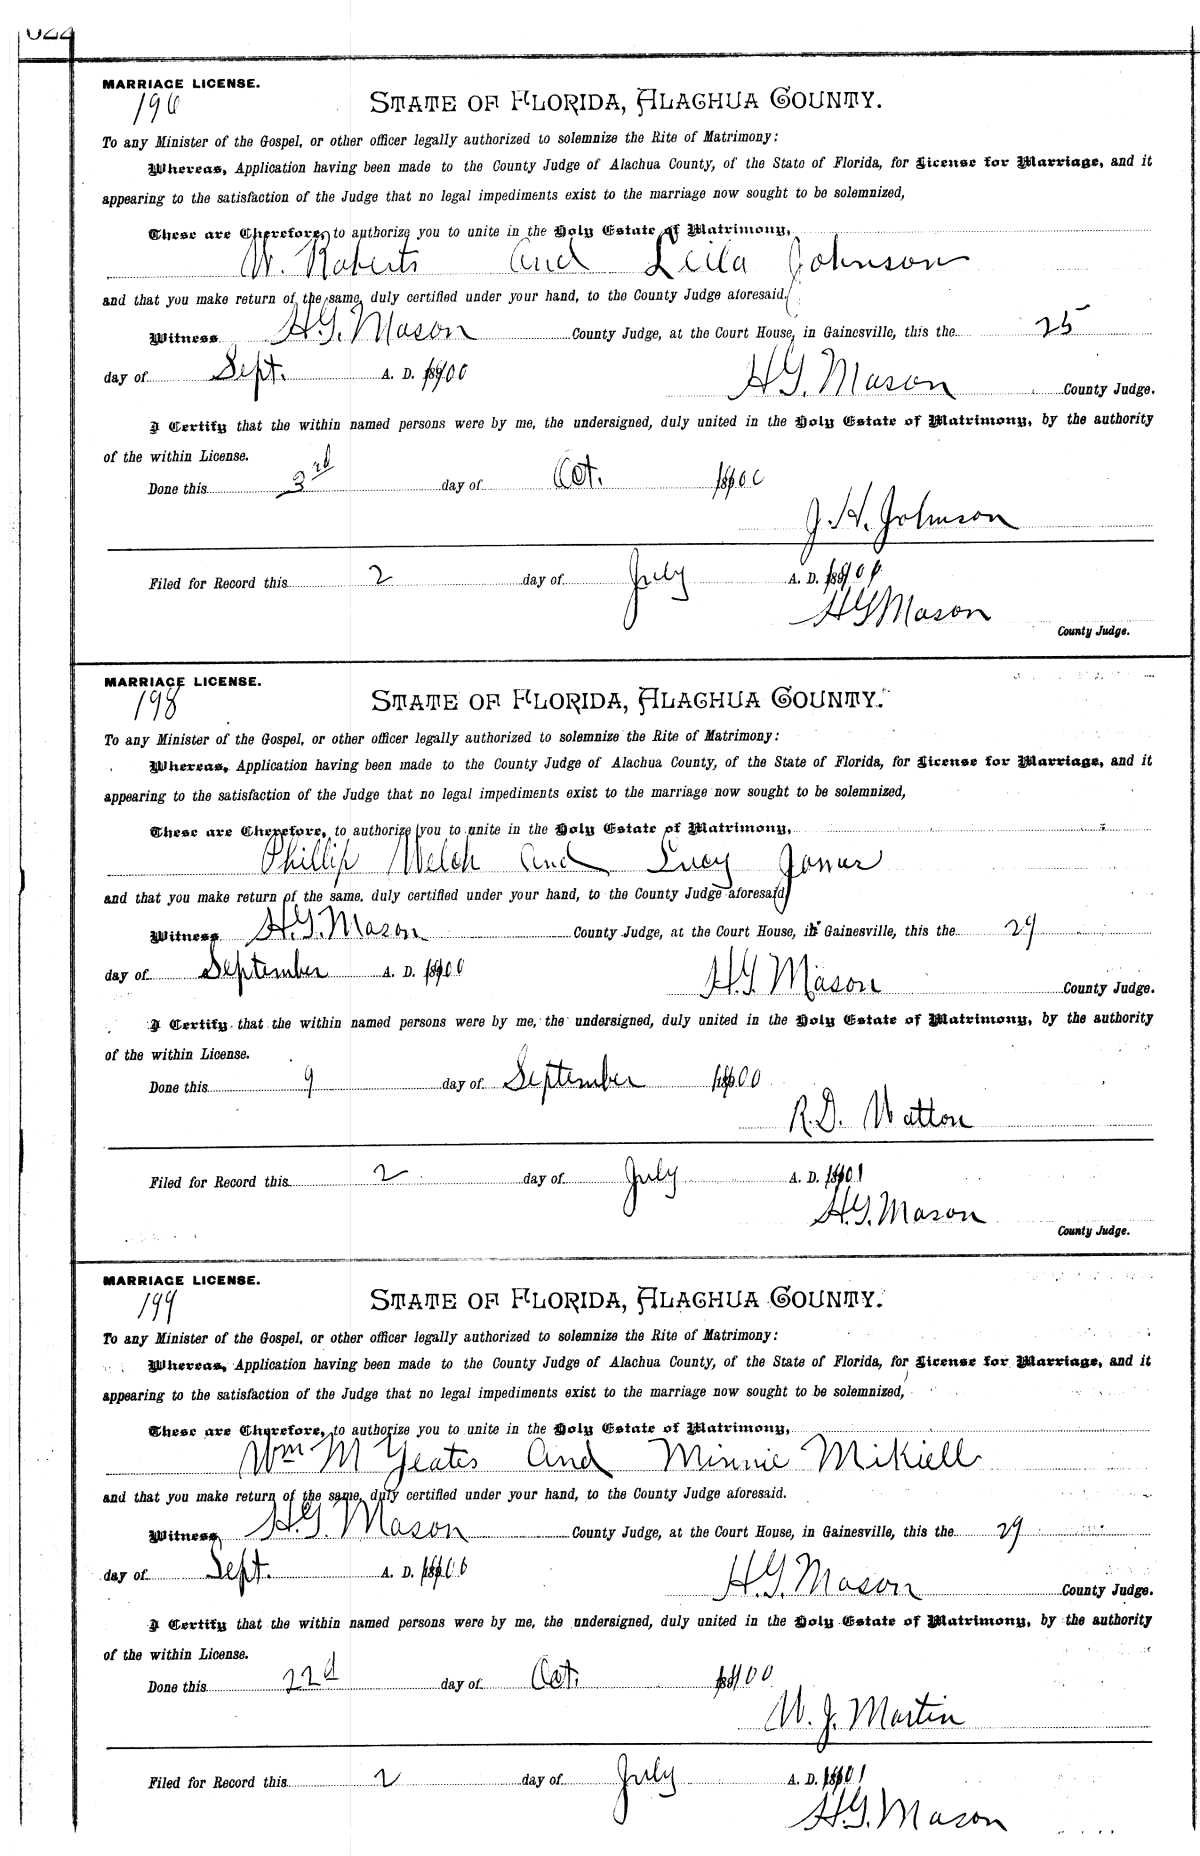 MARRIAGE LICENSE.
196
STATE OF FLORIDA, ALACHUA COUNTY.
To any Minister of the Gospel, or other officer legally authorized to solemnize the Rite of Matrimony:
Whereas, Application having been made to the County Judge of Alachua County, of the State of Florida, for License for Marriage, and it
appearing to the satisfaction of the Judge that no legal impediments exist to the marriage now sought to be solemnized,
These are Therefore, to authorize you to unite in the Holy Estate of Matrimony,
W. Roberts and Leila Johnson
and that you make return of the same, duly certified under your hand, to the County Judge aforesaid.
Witness H.G. Mason County Judge, at the Court House, in Gainesville, this the 25
day of Sept. A. D. 1900
H.G. Mason County Judge.
I Certify that the within named persons were by me, the undersigned, duly united in the Holy Estate of Matrimony, by the authority
of the within License.
Done this 3rd day of Oct. 1900
J. H. Johnson
Filed for Record this 2 day of July A. D. 1901
H.G. Mason
County Judge.
MARRIAGE LICENSE.
198
STATE OF FLORIDA, ALACHUA COUNTY.
To any Minister of the Gospel, or other officer legally authorized to solemnize the Rite of Matrimony:
Whereas, Application having been made to the County Judge of Alachua County, of the State of Florida, for License for Marriage, and it
appearing to the satisfaction of the Judge that no legal impediments exist to the marriage now sought to be solemnized,
These are Therefore, to authorize you to unite in the Holy Estate of Matrimony,
Phillip Welch and Lucy
and that you make return of the same, duly certified under your hand, to the County Judge aforesaid
Witness H.G. Mason County Judge, at the Court House, in Gainesville, this the 29
day of September A. D. 1900
H.G. Mason County Judge.
I Certify that the within named persons were by me, the undersigned, duly united in the Holy Estate of Matrimony, by the authority
of the within License.
Done this 9 day of September 1900
R.D. Watton
Filed for Record this 2 day of July A. D. 1901
H.G. Mason
County Judge.
MARRIAGE LICENSE.
199
STATE OF FLORIDA, ALACHUA COUNTY.
To any Minister of the Gospel, or other officer legally authorized to solemnize the Rite of Matrimony:
Whereas, Application having been made to the County Judge of Alachua County, of the State of Florida, for License for Marriage, and it
appearing to the satisfaction of the Judge that no legal impediments exist to the marriage now sought to be solemnized,
These are Therefore, to authorize you to unite in the Holy Estate of Matrimony,
Wm M Yeates and Minnie Mikiell
and that you make return of the same, duly certified under your hand, to the County Judge aforesaid.
Witness H.G. Mason County Judge, at the Court House, in Gainesville, this the 29
day of Sept. A. D. 1900
H.G. Mason County Judge.
I Certify that the within named persons were by me, the undersigned, duly united in the Holy Estate of Matrimony, by the authority
of the within License.
Done this 22d day of Oct. 1900
W. J. Martin
Filed for Record this 2 day of July A. D. 1901
H.G. Mason